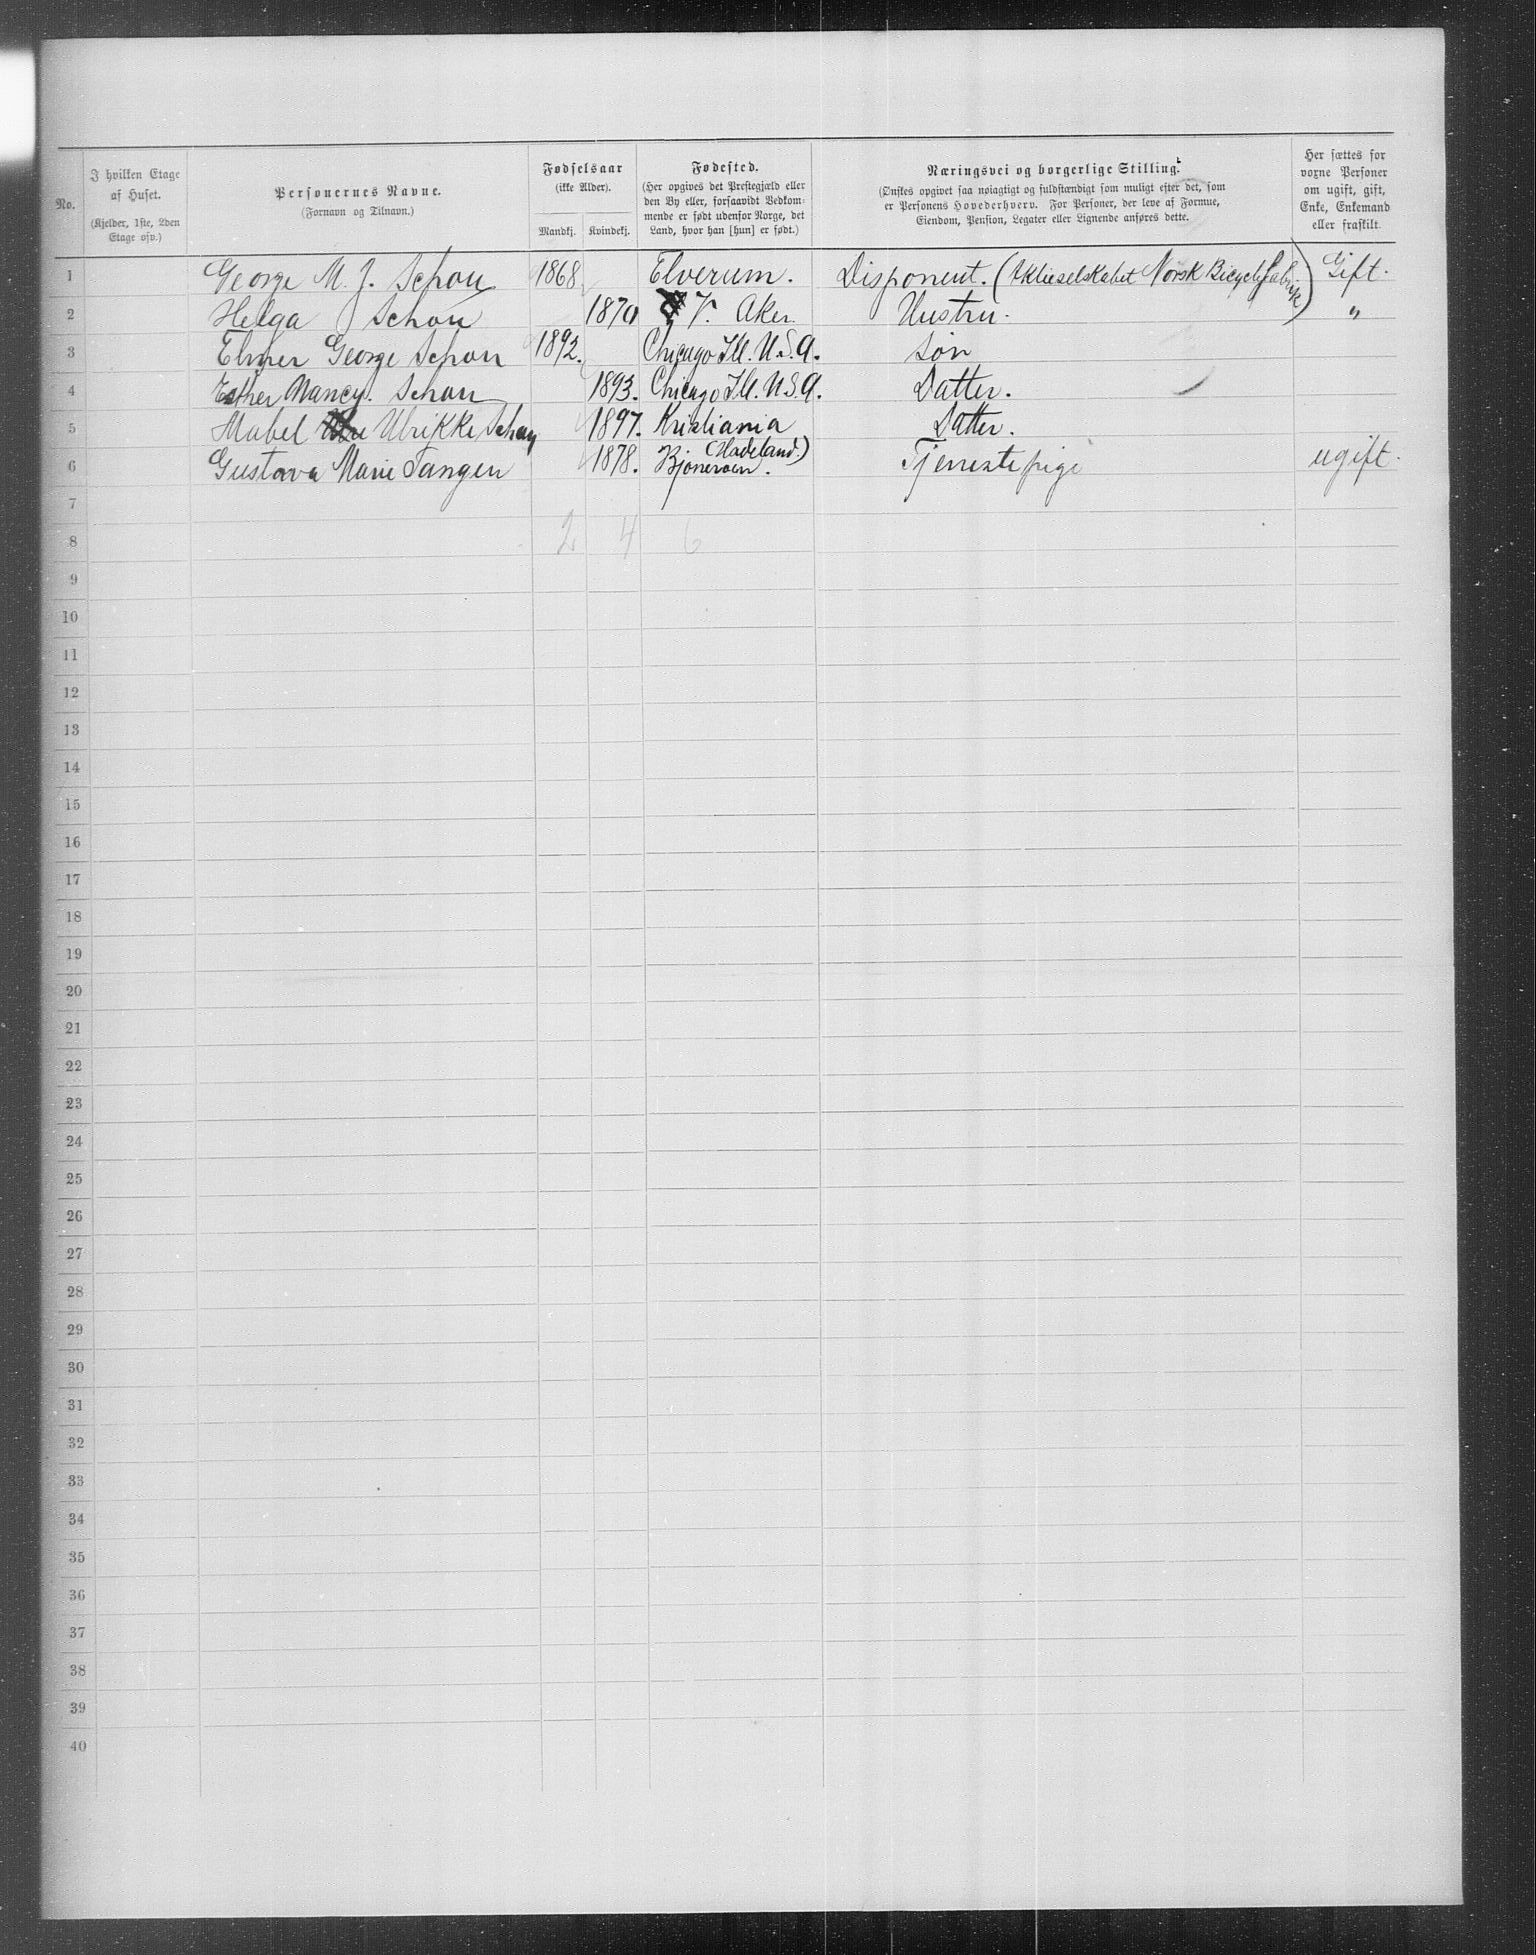 No. I hvilken Etage af Huset. (Kjelder, 1ste, 2den Etage osv.) Personernes Navne. (Fornavn og Tilnavn.) Fødselsaar (ikke Alder). Mandkj. Kvindekj. Fødested. (Her opgives det Prestegjæld eller den By eller, forsaavidt Vedkommende er født udenfor Norge, det Land, hvor han [hun] er født.) Næringsvei og borgerlige Stilling. (Ønskes opgivet saa nøiagtigt og fuldstændigt som muligt efter det, som er Personens Hovederhverv. For Personer, der leve af Formue, Eiendom, Pension, Legater eller Lignende anføres dette. Her sættes for voxne Personer om ugift, gift, Enke, Enkemand eller fraskilt.
1 George M. J. Schou 1868 Elverum. Disponent. (Aktieselskabet Norsk Bicyclefabrik) Gift.
2 Helga Schou 1870 V. Aker. Hustru. "
3 Elmer George Schou 1892. Chicago Ill. U.S.A. Søn
4 Esther Nancy. Schou 1893. Chicago Ill. U.S.A. Datter.
5 Mabel Ulrikke Schou 1897. Kristiania Datter.
6 Gustava Marie Tangen 1878. Bjoneroen. (Hadeland.) Tjenestepige ugift.
7
8 2 4 6
9
10
11
12
13
14
15
16
17
18
19
20
21
22
23
24
25
26
27
28
29
30
31
32
33
34
35
36
37
38
39
40